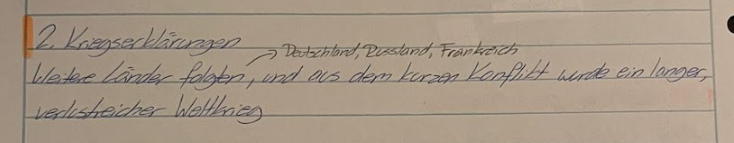 2. Kriegserklärungen
→ Deutschland, Russland, Frankreich
Weitere Länder folgten, und aus dem kurzen Konflikt wurde ein langer,
verlustreicher Weltkrieg